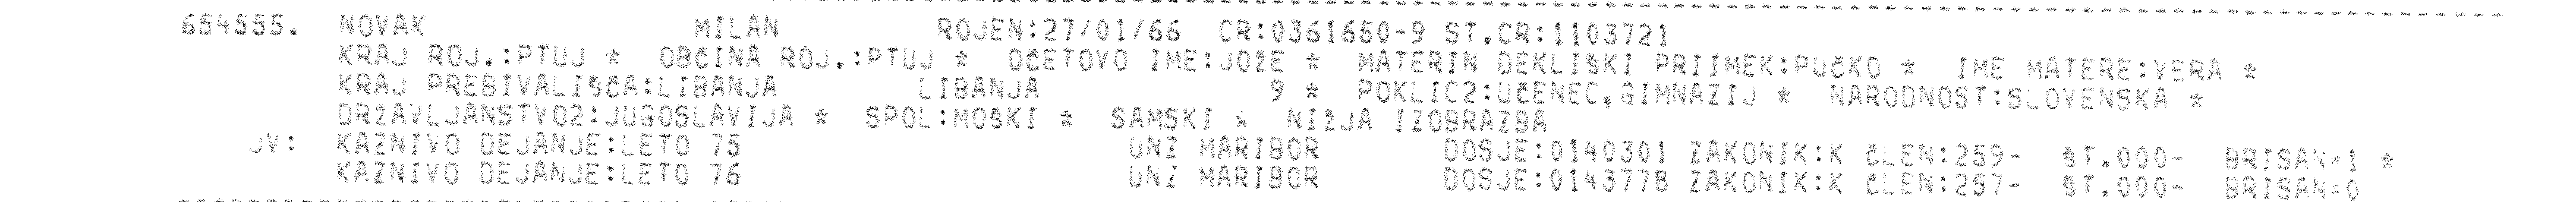 654555. NOVAK MILAN ROJEN:27/01/66 CR:0361650-9 ST.CR:1103721
KRAJ ROJ.:PTUJ * OBČINA ROJ.:PTUJ * OČETOVO IME:JOŽE * MATERIN DEKLIŠKI PRIIMEK:PUČKO * IME MATERE:VERA *
KRAJ PREBIVALIŠČA:LIBANJA LIBANJA 9 * POKLIC2:UČENEC,GIMNAZIJ * NARODNOST:SLOVENSKA *
DRŽAVLJANSTVO2:JUGOSLAVIJA * SPOL:MOŠKI * SAMSKI * NIŽJA IZOBRAZBA
JV: KAZNIVO DEJANJE:LETO 75 UNZ MARIBOR DOSJE:0140301 ZAKONIK:K ČLEN:259- ŠT.000- BRISAN=1 *
KAZNIVO DEJANJE:LETO 76 UNZ MARIBOR DOSJE:0143778 ZAKONIK:K ČLEN:257- ŠT.000- BRISAN=0